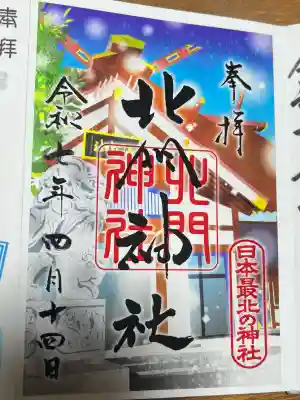 奉拝
北門神社
北門
神社
令和七年四月十四日
日本最北の神社
奉拝